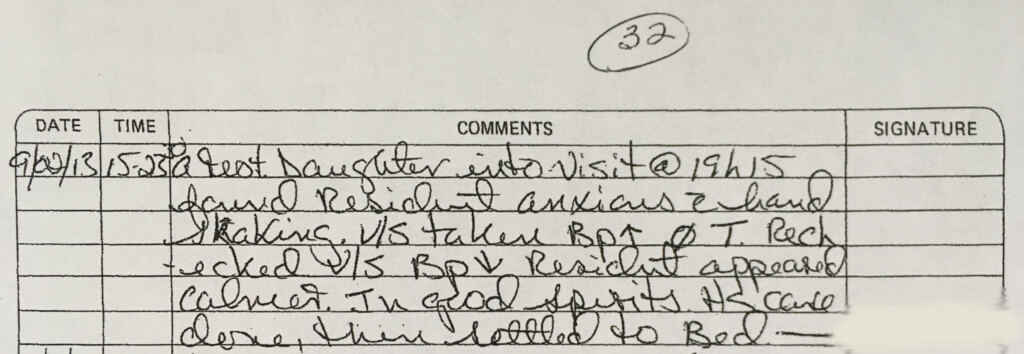 32
DATE TIME COMMENTS SIGNATURE
9/02/13 15-23° Daughter into Visit @ 19h15
found Resident anxious c̄ hand
shaking. V/S taken Bp↑ ∅ T. Rech
-ecked V/S Bp↓ Resident appeared
calmer. In good spirits. HS care
done, then settled to Bed. —